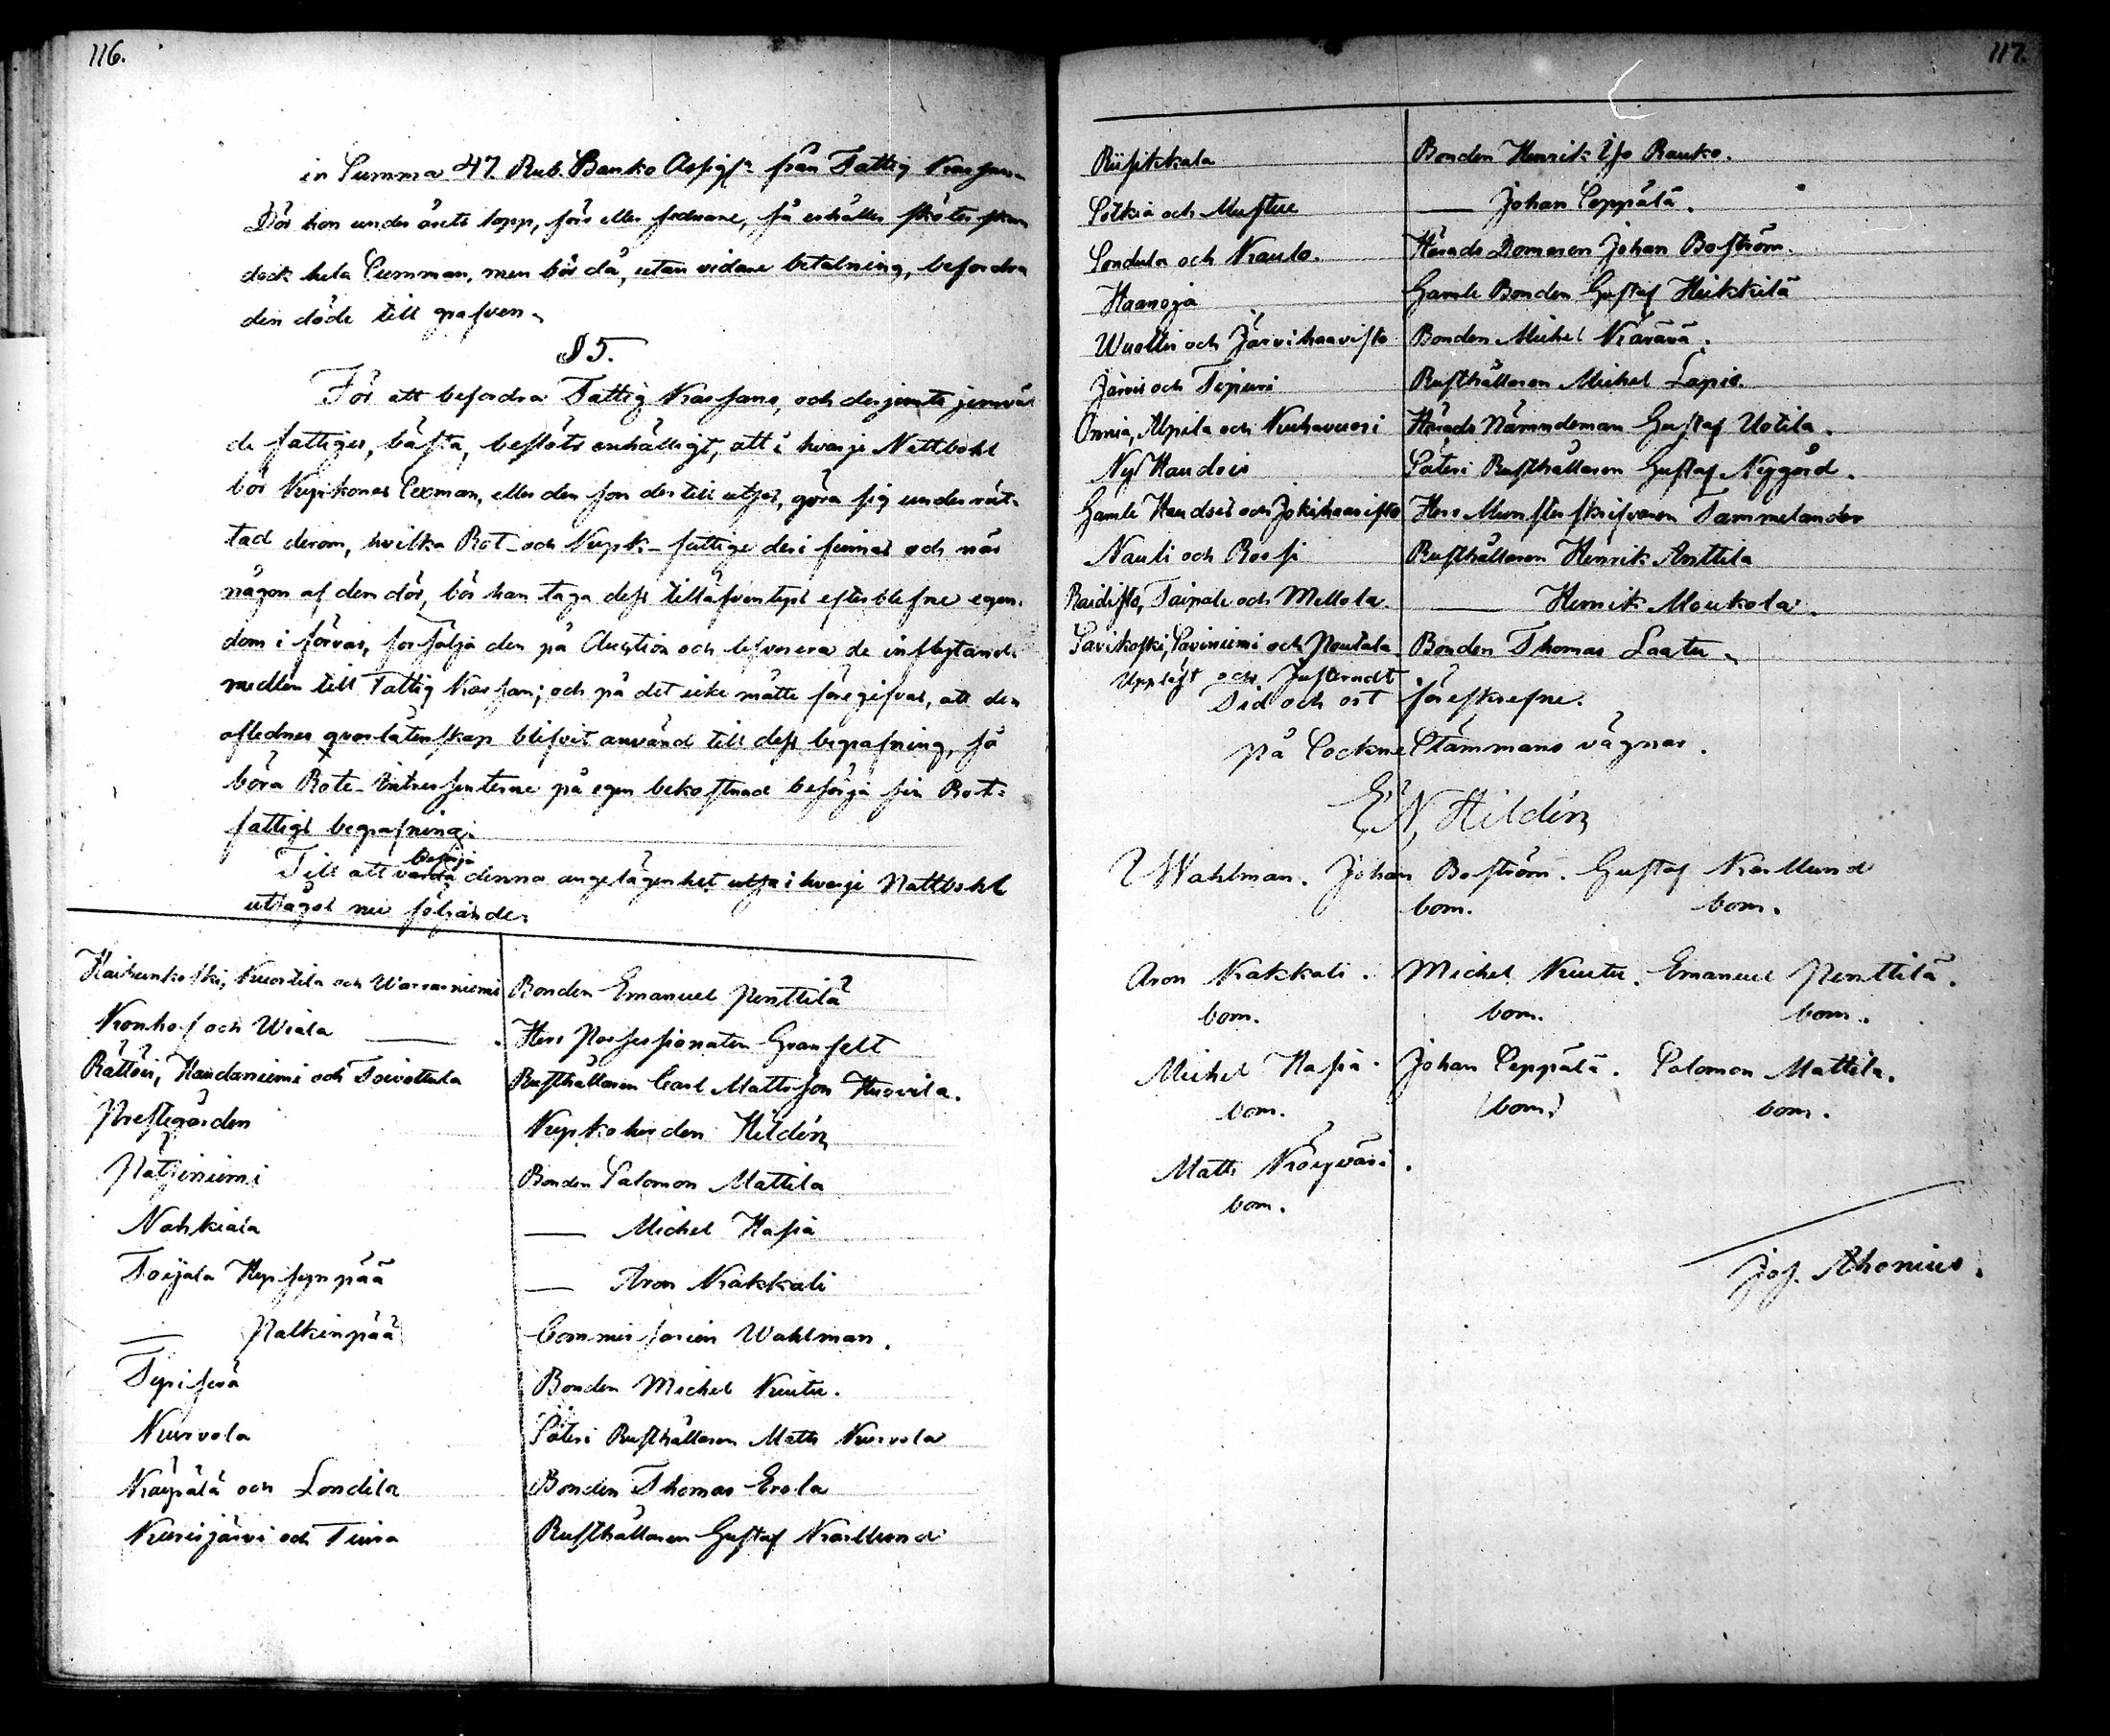 116.
in Summa 47. Rub. Banko Assign: från Fattig Kassan.
Dör hon under årets lopp, förr eller sednare, så erhåller sköterskan
dock hela Summan, men bör då, utan vidare betalning, befordra
den döde till grafven.
§ 5.
För att befordra Fattig Kassans, och derjemte jemväl
de fattiges, bästa, beslöts enhälligt, att i hvarje Nattbohl
bör Kyrkones Sexman, eller den som dertill utses, göra sig underrät-
tad derom, hvilka Rot- och Kyrk-fattige deri finnas och när
någon af dem dör, bör han taga dess tilläfventyrs efterblefne egen-
dom i förvar, försälja den på Auction och leverera de inflytande
medlen till Fattig Kassan; och på det icke måtte föregifvas, att den
aflednes qvarlåtenskap blifvit använd till dess begrafning, så
böra Rote-Intressenterne på egen bekostnad besörja sin Rot-
fattigs begrafning.
besörja
Till att vårda denna angelägenhet utsa i hvarje Nattbohl
utsågos nu följande:
Kaihunkoski, Kuortila och Warrasniemi Bonden Emanuel Penttilä
Kronhof och Wiala Herr Possessionaten Granfelt
Rättöi, Haudaniemi och Toivottula Rusthållaren Carl Mattsson Huovila.
Prestegården Kyrkoherden Hildén
Pätsiniemi Bonden Salomon Mattila
Nahkiala — Michel Hasia
Toijala Hyrsynpää — Aron Kakkali
— Palkinpää Commissarien Wahlman.
Sypiserä Bonden Michel Kuutu.
Kurvola Säteri Rusthållaren Matts Kurvola
Käypälä och Londila Bonden Thomas Erola
Kuurijärvi och Tiura Rusthållaren Gustaf Karllund
117.
Riisikkala Bonden Henrik Iso Rauko.
Sotkia och Mustue — Johan Seppälä.
Sondula och Kaulo. Härads Domaren Johan Boström.
Haanoja Gamle Bonden Gustaf Heikkilä
Wuolter och Järvihaavisto Bonden Michel Käräsä.
Järvis och Topuri Rusthållaren Michel Lapio.
Onnia, Alpila och Kuhavuori Härads Nämndeman Gustaf Uotila.
Ny Haudois Säteri Rusthållaren Gustaf Nygård.
Gamle Haudois och Jokihaavisto Herr Munsterskrifvaren Tammelander
Nauli och Rossi Rusthållaren Henrik Anttila
Raidisto, Taipale och Mellola. — Henrik Moukola.
Savikoski, Saviniemi och Poutala Bonden Thomas Laatu.
Uppläst och Justeradt
Tid och ort föreskrefne.
på Sockne Stämmans vägnar.
E N Hildén
Wahlman. Johan Boström. Gustaf Karllund
bom. bom.
Aron Kakkali. Michel Kuutu. Emanuel Penttilä.
bom. bom. bom.
Michel Hasia. Johan Seppälä. Salomon Mattila.
bom. bom. bom.
Matts Käyväri.
bom.
Jos. Ahonius.